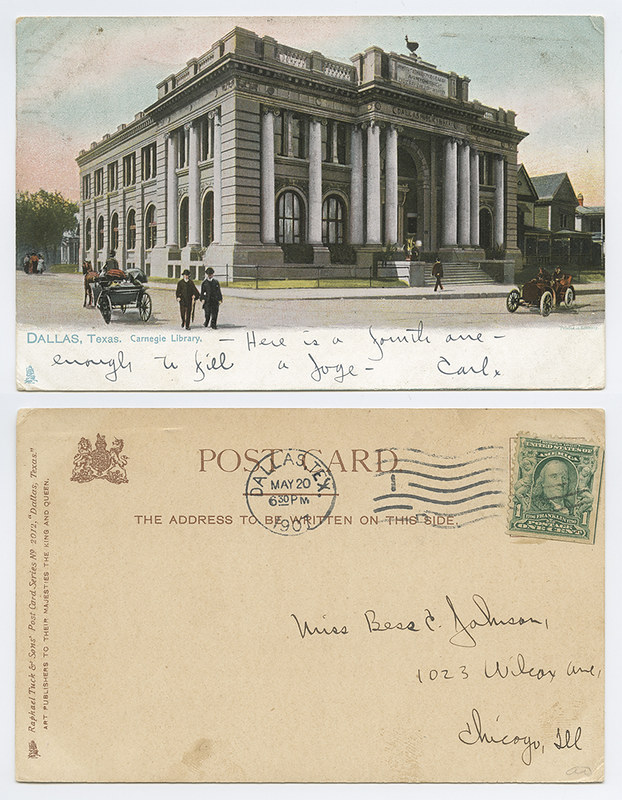 CARNEGIE LIBRARY
DALLAS, Texas. Carnegie Library. - Here is a fourth one -
enough to fill a page - Carl.
Raphael Tuck & Sons' Post Card Series No 2012, "Dallas, Texas."
ART PUBLISHERS TO THEIR MAJESTIES THE KING AND QUEEN.
POST CARD
THE ADDRESS TO BE WRITTEN ON THIS SIDE.
DALLAS, TEX.
MAY 20
6 30 PM
190
1
UNITED STATES OF
AMERICA
1 FRANKLIN 1
POSTAGE
ONE CENT
Miss Bess E. Johnson,
1023 Wilcox ave,
Chicago, Ill